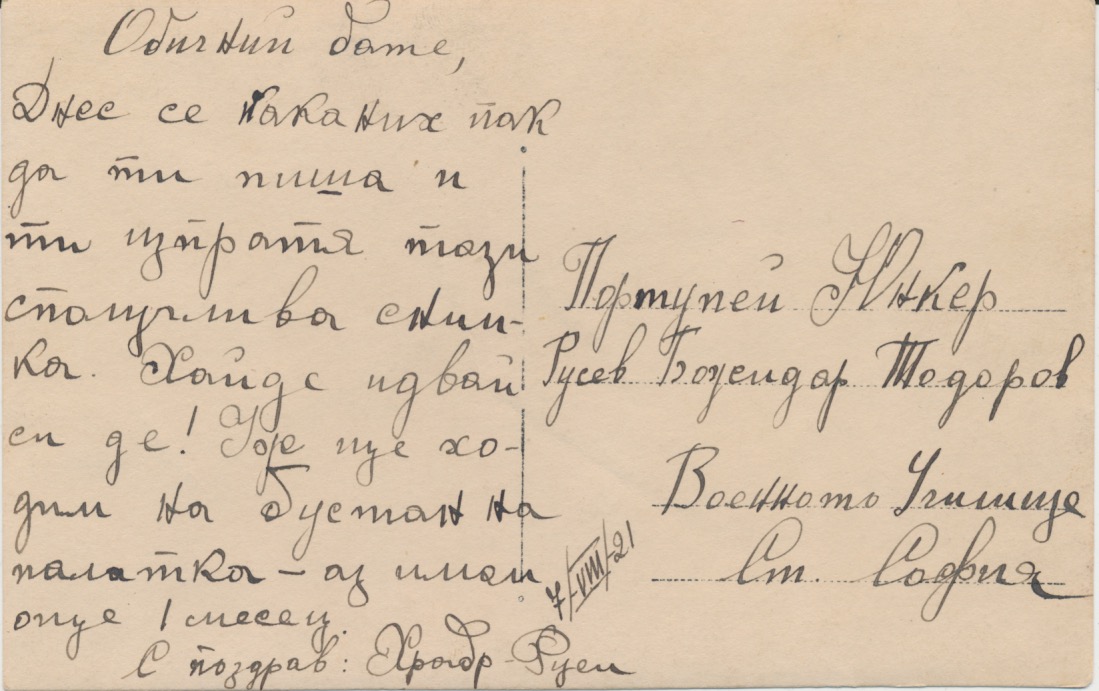 Обичний бате,
Днес се наканих пак
да ти пиша и
ти изпратя тази
сполучлива сним-
ка. Хайде идвай
си де! Уж ще хо-
дим на бустан на
палатка – аз имам
още 1 месец.
С поздрав: Храбр
Портупей Юнкер
Русев Божидар Тодоров
Военното Училище
Ст. София
7/VIII/21